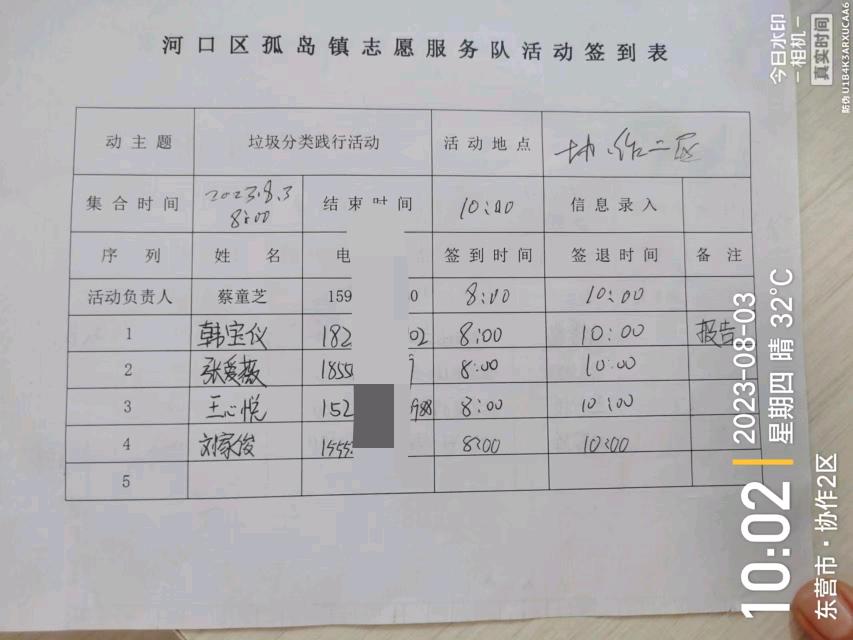 河口区孤岛镇志愿服务队活动签到表
动主题 垃圾分类践行活动 活动地点 协作二区
集合时间 2023.8.3 8:00 结束时间 10:00 信息录入
序列 姓名 电 签到时间 签退时间 备注
活动负责人 蔡童芝 159 0 8:00 10:00
1 韩宝仪 182 02 8:00 10:00 报告
2 张爱薇 1855 9 8:00 10:00
3 王心悦 152 988 8:00 10:00
4 刘家俊 1555 8:00 10:00
5
今日水印
-相机-
真实时间
防伪 U1B4K3ARXUCAA6
10:02
2023-08-03
星期四 晴 32℃
东营市·协作2区